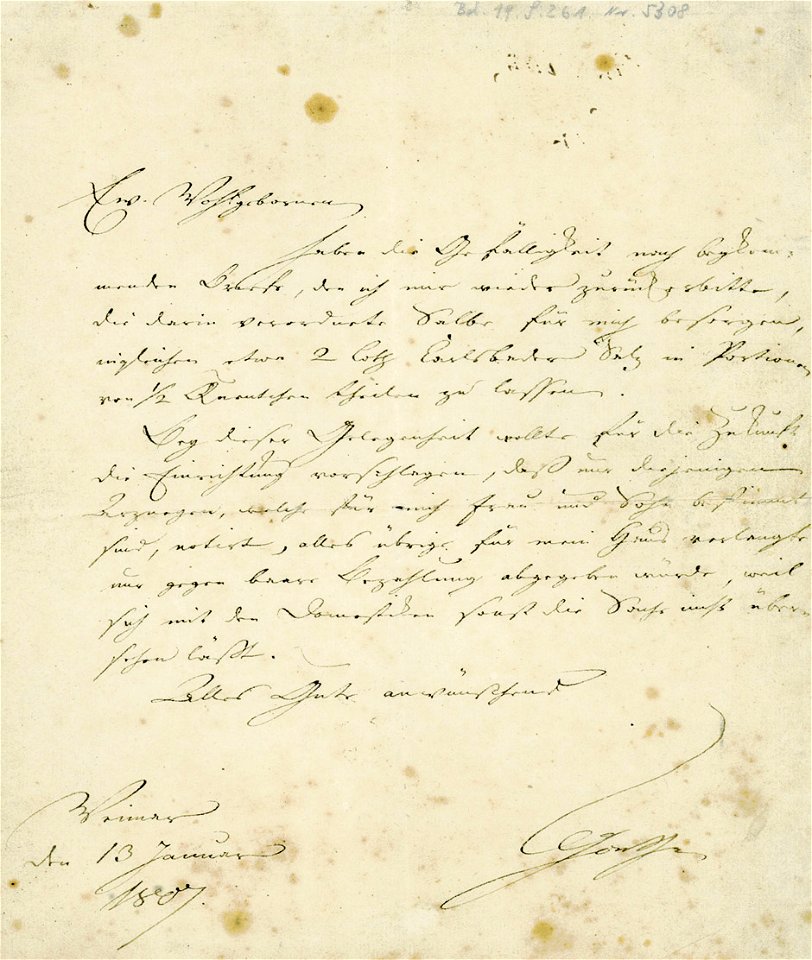 Bd. 19 S. 261. Nr. 5308
Ew. Wohlgebornen
haben die Gefälligkeit nach beykom-
menden Recepte, den ich mir wieder zurück erbitte,
die darin verordnete Salbe für mich besorgen,
ingleichen etwa 2 Loth Karlsbader Salz in Portionen
von 1/2 Quentchen theilen zu lassen.
Bey dieser Gelegenheit wollte für die Zukunft
die Einrichtung vorschlagen, daß nur diejenigen
Arzneyen, welche für mich Frau und Sohn bestimmt
sind, notirt, alles übrige für mein Haus verlangte
nur gegen baare Bezahlung abgegeben würde, weil
sich mit den Domestiken sonst die Sache nicht über-
sehen läßt.
Alles Gute anwünschend
Weimar
den 13 Januar
1807.
Goethe